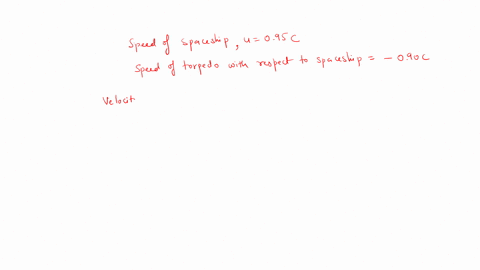 Speed of spaceship, u = 0.95 C
Speed of torpedo with respect to spaceship = - 0.90 C
Velocit